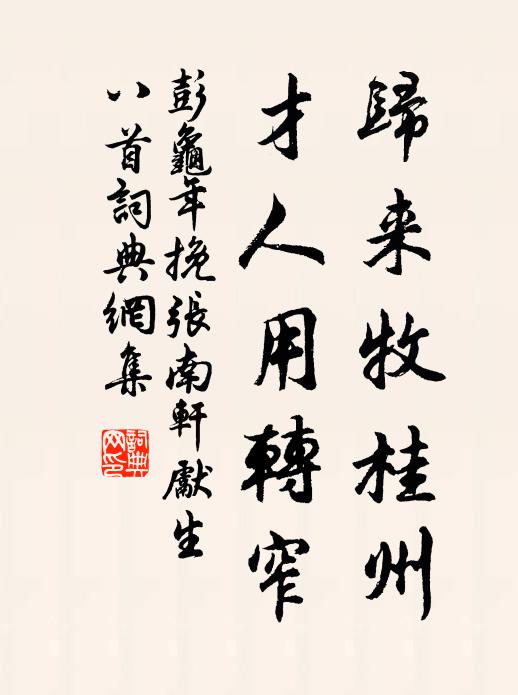 歸来牧桂州
才人用轉窄
彭龜年挽張南軒獻生
八首詞典網集
詞典网印